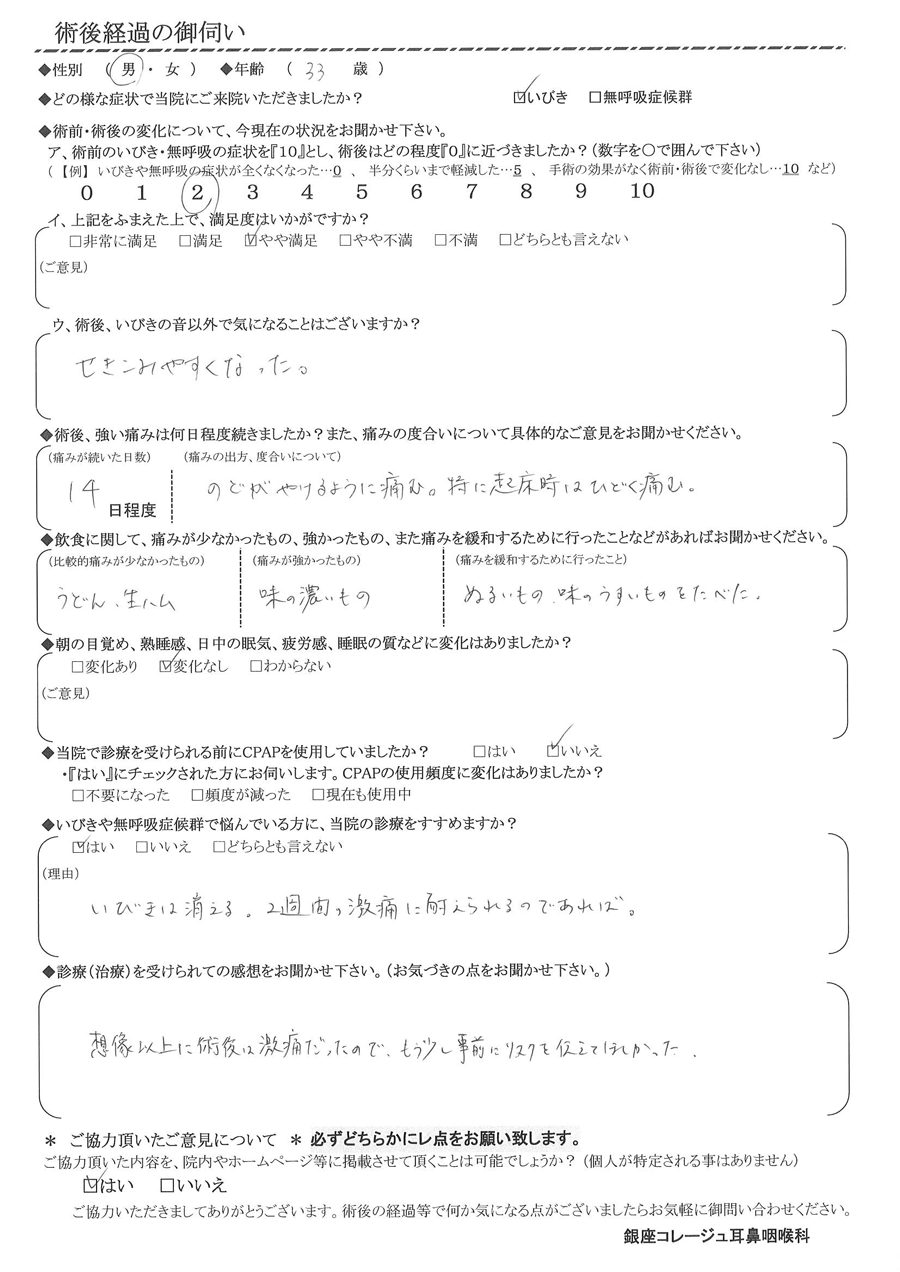 術後経過の御伺い
◆性別 ( 男 ・ 女 ) ◆年齢 ( 33 歳 )
◆どの様な症状で当院にご来院いただきましたか? ☑いびき □無呼吸症候群
◆術前・術後の変化について、今現在の状況をお聞かせ下さい。
ア、術前のいびき・無呼吸の症状を『10』とし、術後はどの程度『0』に近づきましたか?(数字を〇で囲んで下さい)
(【例】 いびきや無呼吸の症状が全くなくなった…0 、 半分くらいまで軽減した…5 、 手術の効果がなく術前・術後で変化なし…10 など)
0 1 2 3 4 5 6 7 8 9 10
イ、上記をふまえた上で、満足度はいかがですか?
□非常に満足 □満足 ☑やや満足 □やや不満 □不満 □どちらとも言えない
(ご意見)
ウ、術後、いびきの音以外で気になることはございますか?
せきこみやすくなった。
◆術後、強い痛みは何日程度続きましたか?また、痛みの度合いについて具体的なご意見をお聞かせください。
(痛みが続いた日数) (痛みの出方、度合いについて)
14 日程度 のどがやけるように痛む。特に起床時はひどく痛む。
◆飲食に関して、痛みが少なかったもの、強かったもの、また痛みを緩和するために行ったことなどがあればお聞かせください。
(比較的痛みが少なかったもの) (痛みが強かったもの) (痛みを緩和するために行ったこと)
うどん、生ハム 味の濃いもの ぬるいもの、味のうすいものをたべた。
◆朝の目覚め、熟睡感、日中の眠気、疲労感、睡眠の質などに変化はありましたか?
□変化あり ☑変化なし □わからない
(ご意見)
◆当院で診療を受けられる前にCPAPを使用していましたか? □はい ☑いいえ
・『はい』にチェックされた方にお伺いします。CPAPの使用頻度に変化はありましたか?
□不要になった □頻度が減った □現在も使用中
◆いびきや無呼吸症候群で悩んでいる方に、当院の診療をすすめますか?
☑はい □いいえ □どちらとも言えない
(理由)
いびきは消える。2週間の激痛に耐えられるのであれば。
◆診療(治療)を受けられての感想をお聞かせ下さい。(お気づきの点をお聞かせ下さい。)
想像以上に術後は激痛だったので、もう少し事前にリスクを伝えてほしかった.
＊ ご協力頂いたご意見について ＊ 必ずどちらかにレ点をお願い致します。
ご協力頂いた内容を、院内やホームページ等に掲載させて頂くことは可能でしょうか? (個人が特定される事はありません)
☑はい □いいえ
ご協力いただきましてありがとうございます。術後の経過等で何か気になる点がございましたらお気軽に御問い合わせください。
銀座コレージュ耳鼻咽喉科